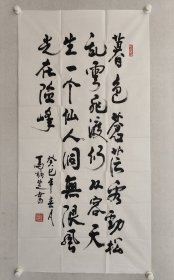 暮色蒼茫看劲松
乱雲飛渡仍从容天
生一个仙人洞無限風
光在險峰
癸巳年春月
馬